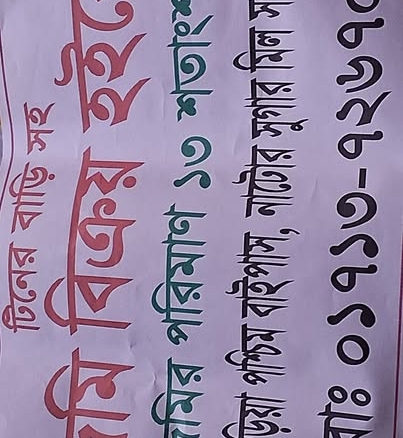 টিনের বাড়ি সহ
মি বিক্রয় হইে
মির পরিমাণ ১৩ শতাংশ
ড়িয়া পশ্চিম বাইপাস, নাটোর সুগার মিল স
০১৭১৩-৭২৬৭